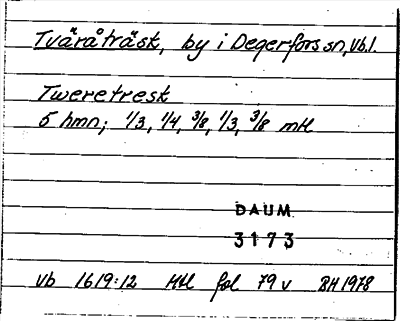 Tväråträsk, by i Degerfors sn, Vb.l.
Tweretresk
5 hmn; 1/3, 1/4, 3/8, 1/3, 3/8 mtl
DAUM
3173
Vb 1619:12 Mtl fol 79 v BH 1978